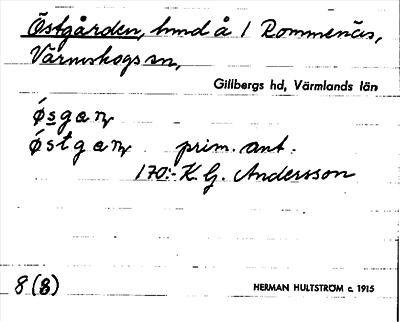 Östgården, hmd å 1 Rommenäs,
Värmskogs sn,
Gillbergs hd, Värmlands län
prim. ant.
170:- K. G. Andersson
8 (8)
HERMAN HULTSTRÖM c. 1915